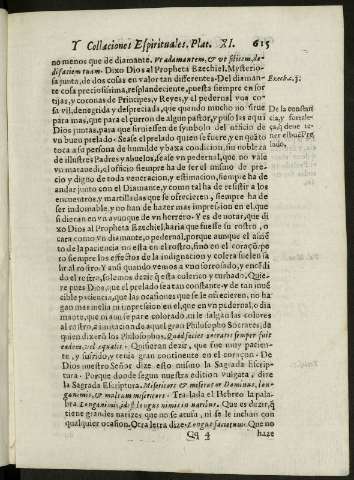 Y Collaciones Espirituales. Plat. XI. 615
no menos que de diamante. Vt adamantem, & vt silicem, de-
di faciem tuam. Dixo Dios al Propheta Ezechiel. Mysterio-
sa junta, de dos cosas en valor tan differentes. Del diaman-
te cosa preciosissima, resplandeciente, puesta siempre en sor
tijas, y coronas de Principes, y Reyes, y el pedernal vna co-
sa vil, denegrida y despreciada, que quando mucho no sirue
para mas, que para el çurron de algun pastor, y puso las aqui
Dios juntas, para que siruiessen de symbolo del officio de
vn buen prelado. Sease el prelado quien se fuere, y en quãto
toca a su persona de humilde y baxa condicion, su nobleza
de illustres Padres y abuelos, sea de vn pedernal, que no vale
vn marauedi, el officio siempre ha de ser el mismo de pre-
cio y digno de toda veneracion, y estimacion, siempre ha de
andar junto con el Diamante, y como tal ha de resistir a los
encuentros, y martilladas que se offrecieren, siempre ha de
ser indomable, y no han de hazer mas impression en el, que
si diera en vn ayunque de vn herrero. Y es de notar, que di
xo Dios al Propheta Ezechiel, hazia que fuesse su rostro, o
cara como vn diamante, o pedernal, porque aunque el assiẽ
to de la paciencia no esta en el rostro, sino en el coraçõ; pe
ro siempre los effectos de la indignacion y colera suelen sa
lir al rostro. Y ansi quando vemos a vno sonrosado, y encẽdi
do el rostro, solemos dezir que esta colerico y enojado. Quie
re pues Dios, que el prelado sea tan constante y de tan inuẽ
cible paciencia, que las ocasiones que se offrecieren, no ha-
gan mas mella ni impression en el, que en vn pedernal, o dia
mante, que ni aun se pare colorado, ni le salgan las colores
al rostro, a imitacion de aquel gran Philosopho Socrates; de
quien dizen los Philosophos, Quod facies Socratis semper fuit
eadem, vel equalis: Quisieran dezir, que fue muy pacien-
te, y sufrido, y tenia gran continente en el coraçon. De
Dios nuestro Señor dize esto mismo la Sagrada Escrip-
tura. Porque donde segun nuestra edition vulgata, dize
la Sagrada Escriptura. Misericors & miserator Dominus, lon-
ganimis, & multum misericors. Traslada el Hebreo la pala-
bra. Longanimis, id est longus nimis in naribus. Que es dezir, q
tiene grandes narizes que no se atufa, ni se le hinchan con
qualquier ocasion. Otra letra dize: Longus facietatus. Que no
Qq 4 haze
Ezech. c. 3.
De la constan
cia, y fortale-
ça q deue te-
ner el buẽ Pre
lado.